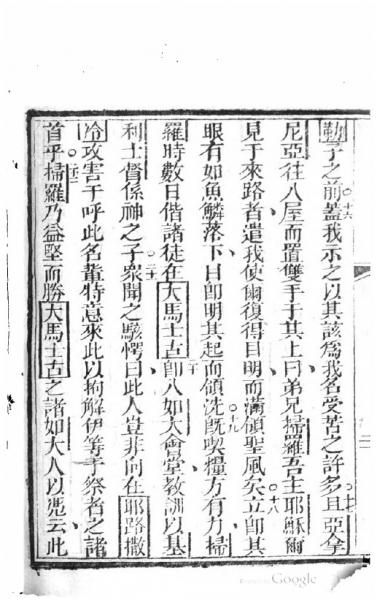 勒子之前○十六蓋我示之以其該爲我名受苦之許多○十七且亞拿
尼亞往入屋而置雙手于其上曰弟兄掃羅吾主耶穌爾
見于來路者遣我使爾復得目明而滿領聖風矣○十八立卽其
眼有如魚鱗落下目卽明其起而領洗○十九旣喫糧方有力掃
羅時數日偕諸徒在大馬士古○二十卽入如大會堂教訓以基
利士督係神之子○二十一衆聞之駭愕曰此人豈非向在耶路撒
冷攻害于呼此名輩特意來此以拘解伊等于祭者之諸
首乎○二十二掃羅乃益堅而勝大馬士古之諸如大人以憑云此
Google